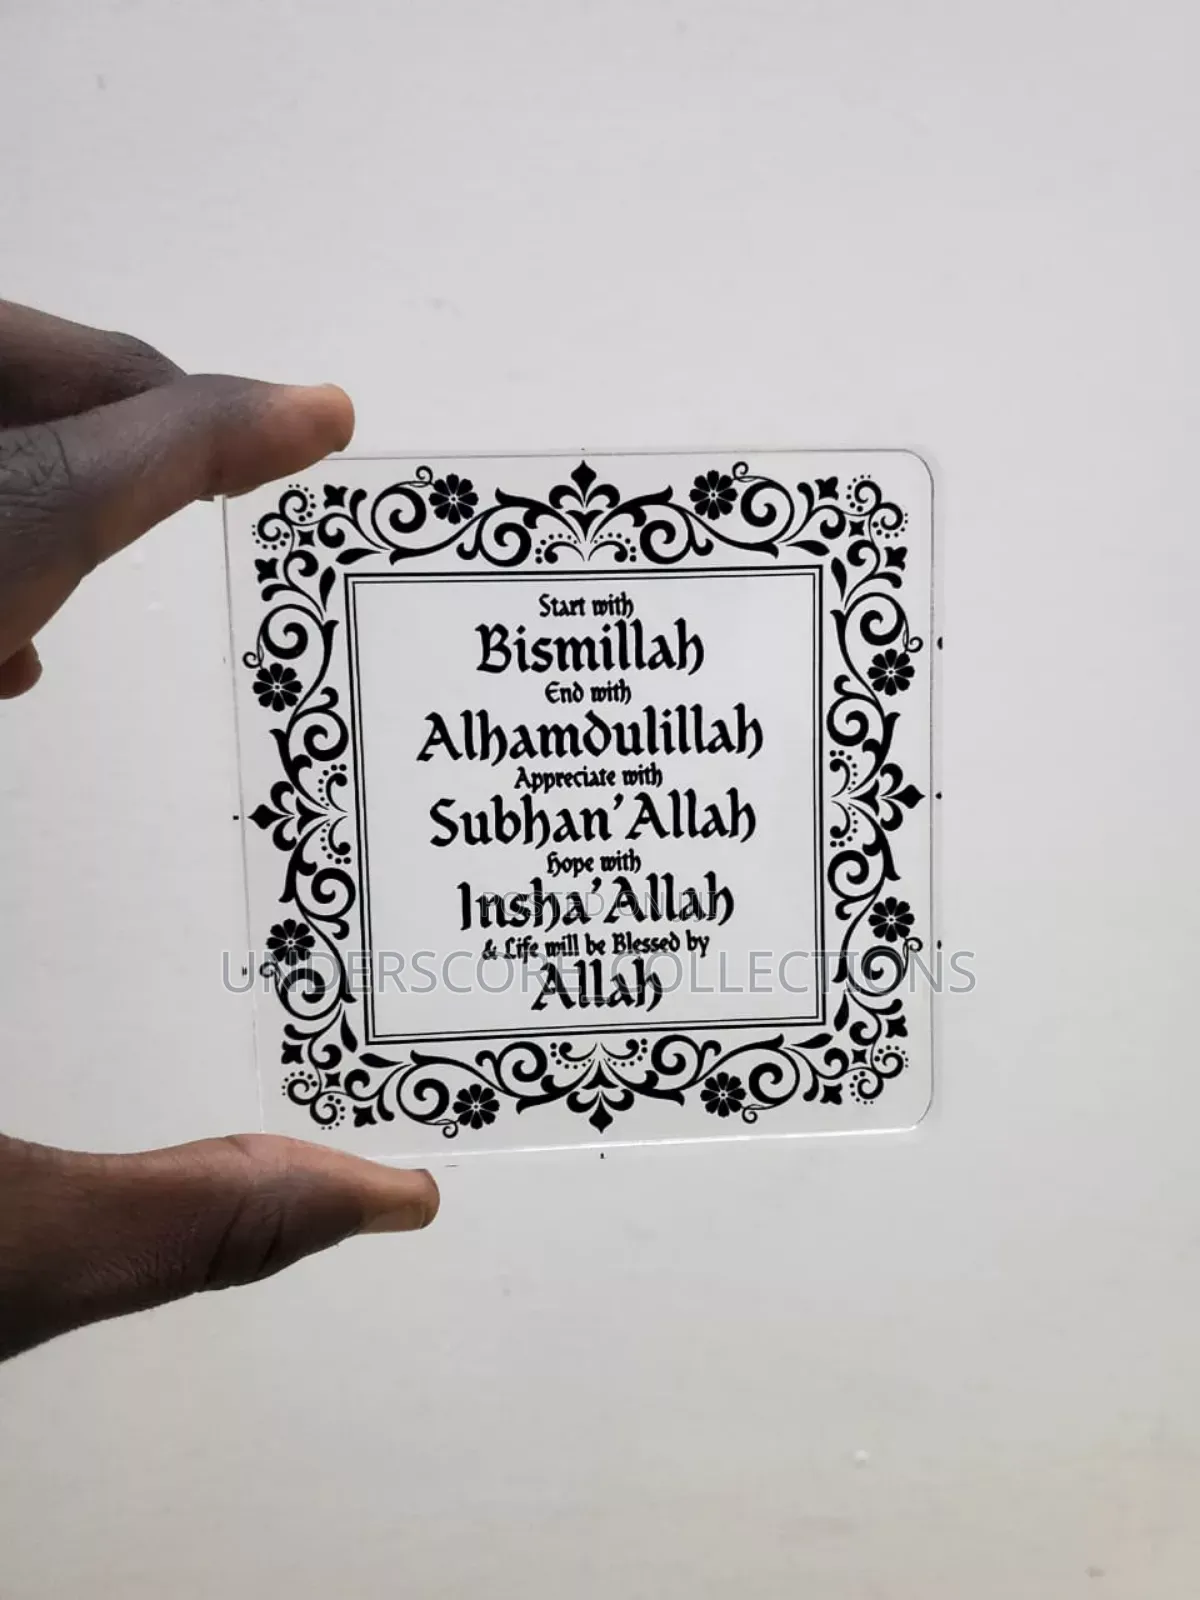 Start with
Bismillah
End with
Alhamdulillah
Appreciate with
Subhan'Allah
Hope with
Insha'Allah
POSTED ON JIJI
& Life will be Blessed by
UNDERSCORE_COLLECTIONS
Allah